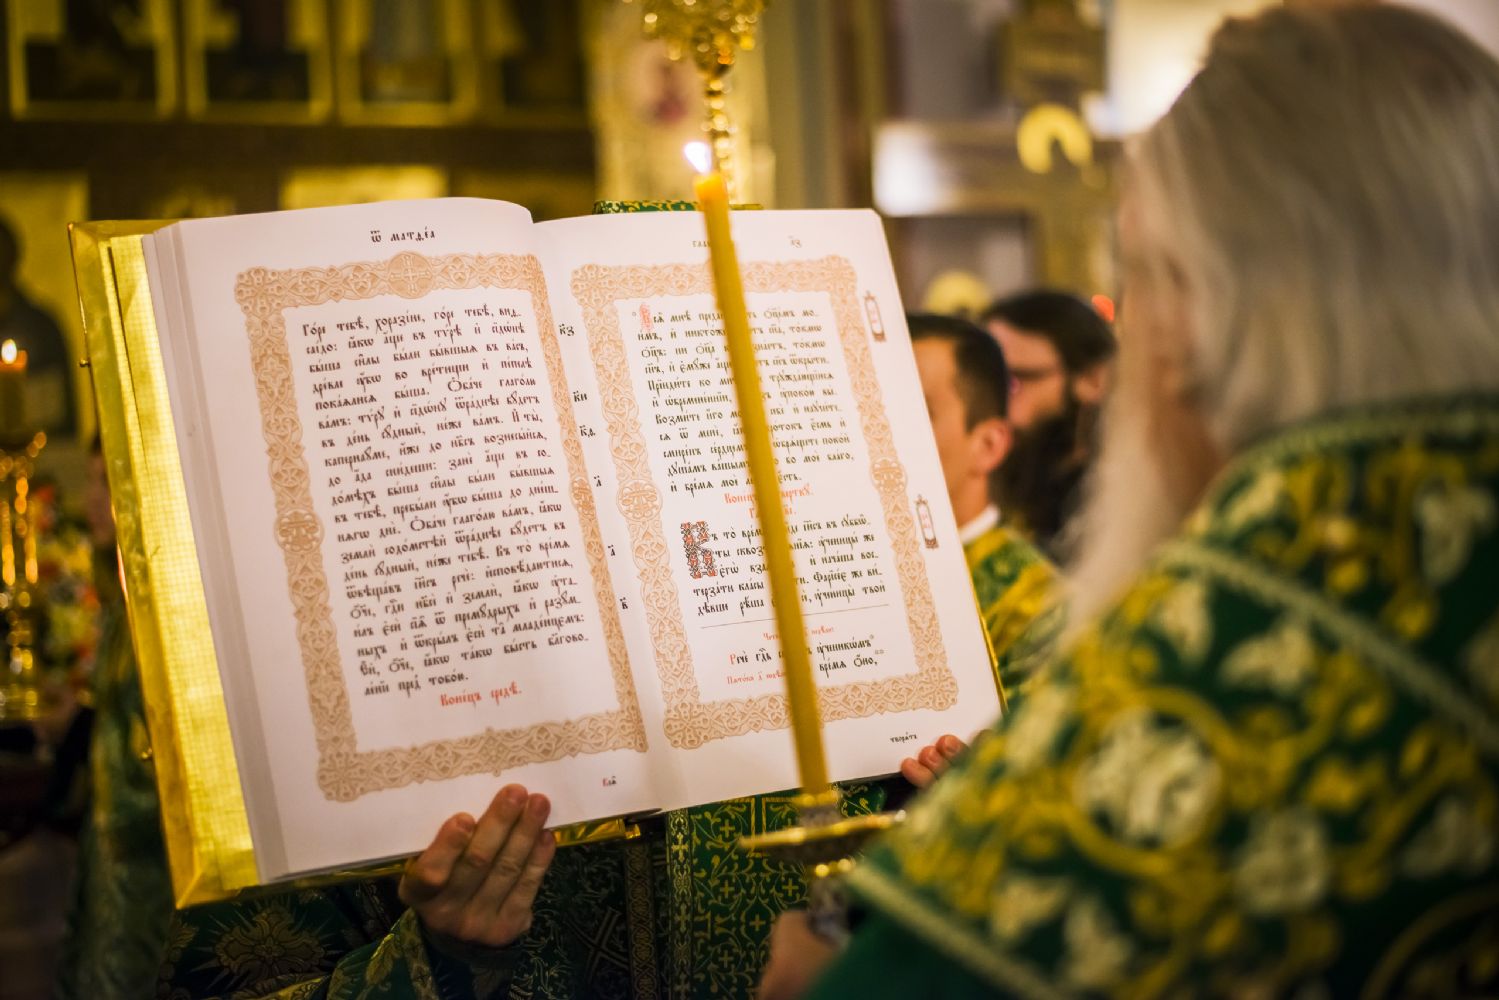 Ѿ матѳе́а
Го́ре тебѣ̀, хоразі́не, го́ре тебѣ̀, виѳ-
саі́до: ꙗ҆́кѡ а҆́ще въ тѵ́рѣ и҆ сїдѡ́нѣ
бы́ша си̑лы бы́ли бы́вшыѧ въ ва́съ,
дре́вле ᲂу҆́бѡ во вре́тищи и҆ пе́пелѣ
пока́ѧлисѧ бы́ша. Ѻ҆ба́че глаго́лю
ва́мъ: тѵ́рꙋ и҆ сїдѡ́нꙋ ѿра́днѣе бꙋ́детъ
въ де́нь сꙋ́дный, не́же ва́мъ. И҆ ты̀,
капернаꙋ́ме, и҆́же до нб҃съ вознесы́йсѧ,
до а҆́да сни́деши: занѐ а҆́ще въ со-
до́мѣхъ бы́ша си̑лы бы́ли бы́вшыѧ
въ тебѣ̀, пребы́ли ᲂу҆́бѡ бы́ша до дне́ш-
нѧгѡ днѐ. Ѻ҆ба́че глаго́лю ва́мъ, ꙗ҆́кѡ
землѝ содо́мстѣй ѿра́днѣе бꙋ́детъ въ
де́нь сꙋ́дный, не́же тебѣ̀. Въ то̀ вре́мѧ
ѿвѣща́въ і҆и҃съ речѐ: и҆сповѣ́даютисѧ,
ѻ҆́ч҃е, гд҇и нб҃сѐ и҆ землѝ, ꙗ҆́кѡ ᲂу҆та-
и́лъ є҆сѝ сїѧ̑ ѿ премꙋ́дрыхъ и҆ разꙋ́м-
ныхъ и҆ ѿкры́лъ є҆сѝ та̑ младе́нцємъ:
є҆́й, ѻ҆́ч҃е, ꙗ҆́кѡ та́кѡ бы́сть бл҃гово-
ле́нїе пред̾ тобо́ю.
Коне́цъ средѣ̀.
к҃з
к҃и
к҃д
Всѧ̑ мнѣ̀ ѻ҆ц҃е́мъ мо-
и́мъ, и҆ никто́же сн҃а, то́кмѡ
ѻ҆ц҃ъ: ни ѻ҆ц҃а̀ то́кмѡ
сн҃ъ, и҆ є҆мꙋ́же а҆́ще сн҃ъ ѿкры́ти.
Прїиди́те ко трꙋжда́ющїисѧ
и҆ ѡ҆бремене́ннїи, ᲂу҆поко́ю вы̀.
Возми́те и҆́го и҆ наꙋчи́те-
сѧ ѿ менє̀, кро́токъ є҆́смь и҆
смире́нъ се́рдцемъ: ѡ҆брѧ́щете поко́й
дꙋша́мъ ва́шымъ: бо моѐ бла́го,
и҆ бре́мѧ моѐ є҆́сть.
Коне́цъ четверткꙋ̀.
Въ то̀ і҆и҃съ въ сꙋббѡ́-
ᲂу҆чн҃цы̀ же
є҆гѡ̀ и҆ нача́ша вос-
терза́ти кла́сы Фарїсе́є же ви́-
дѣвше рѣ́ша ᲂу҆чн҃цы̀ твоѝ
Речѐ гд҇ь ᲂу҆чн҃кѡ́мъ
вре́мѧ ѻ҆́но,
творѧ́тъ